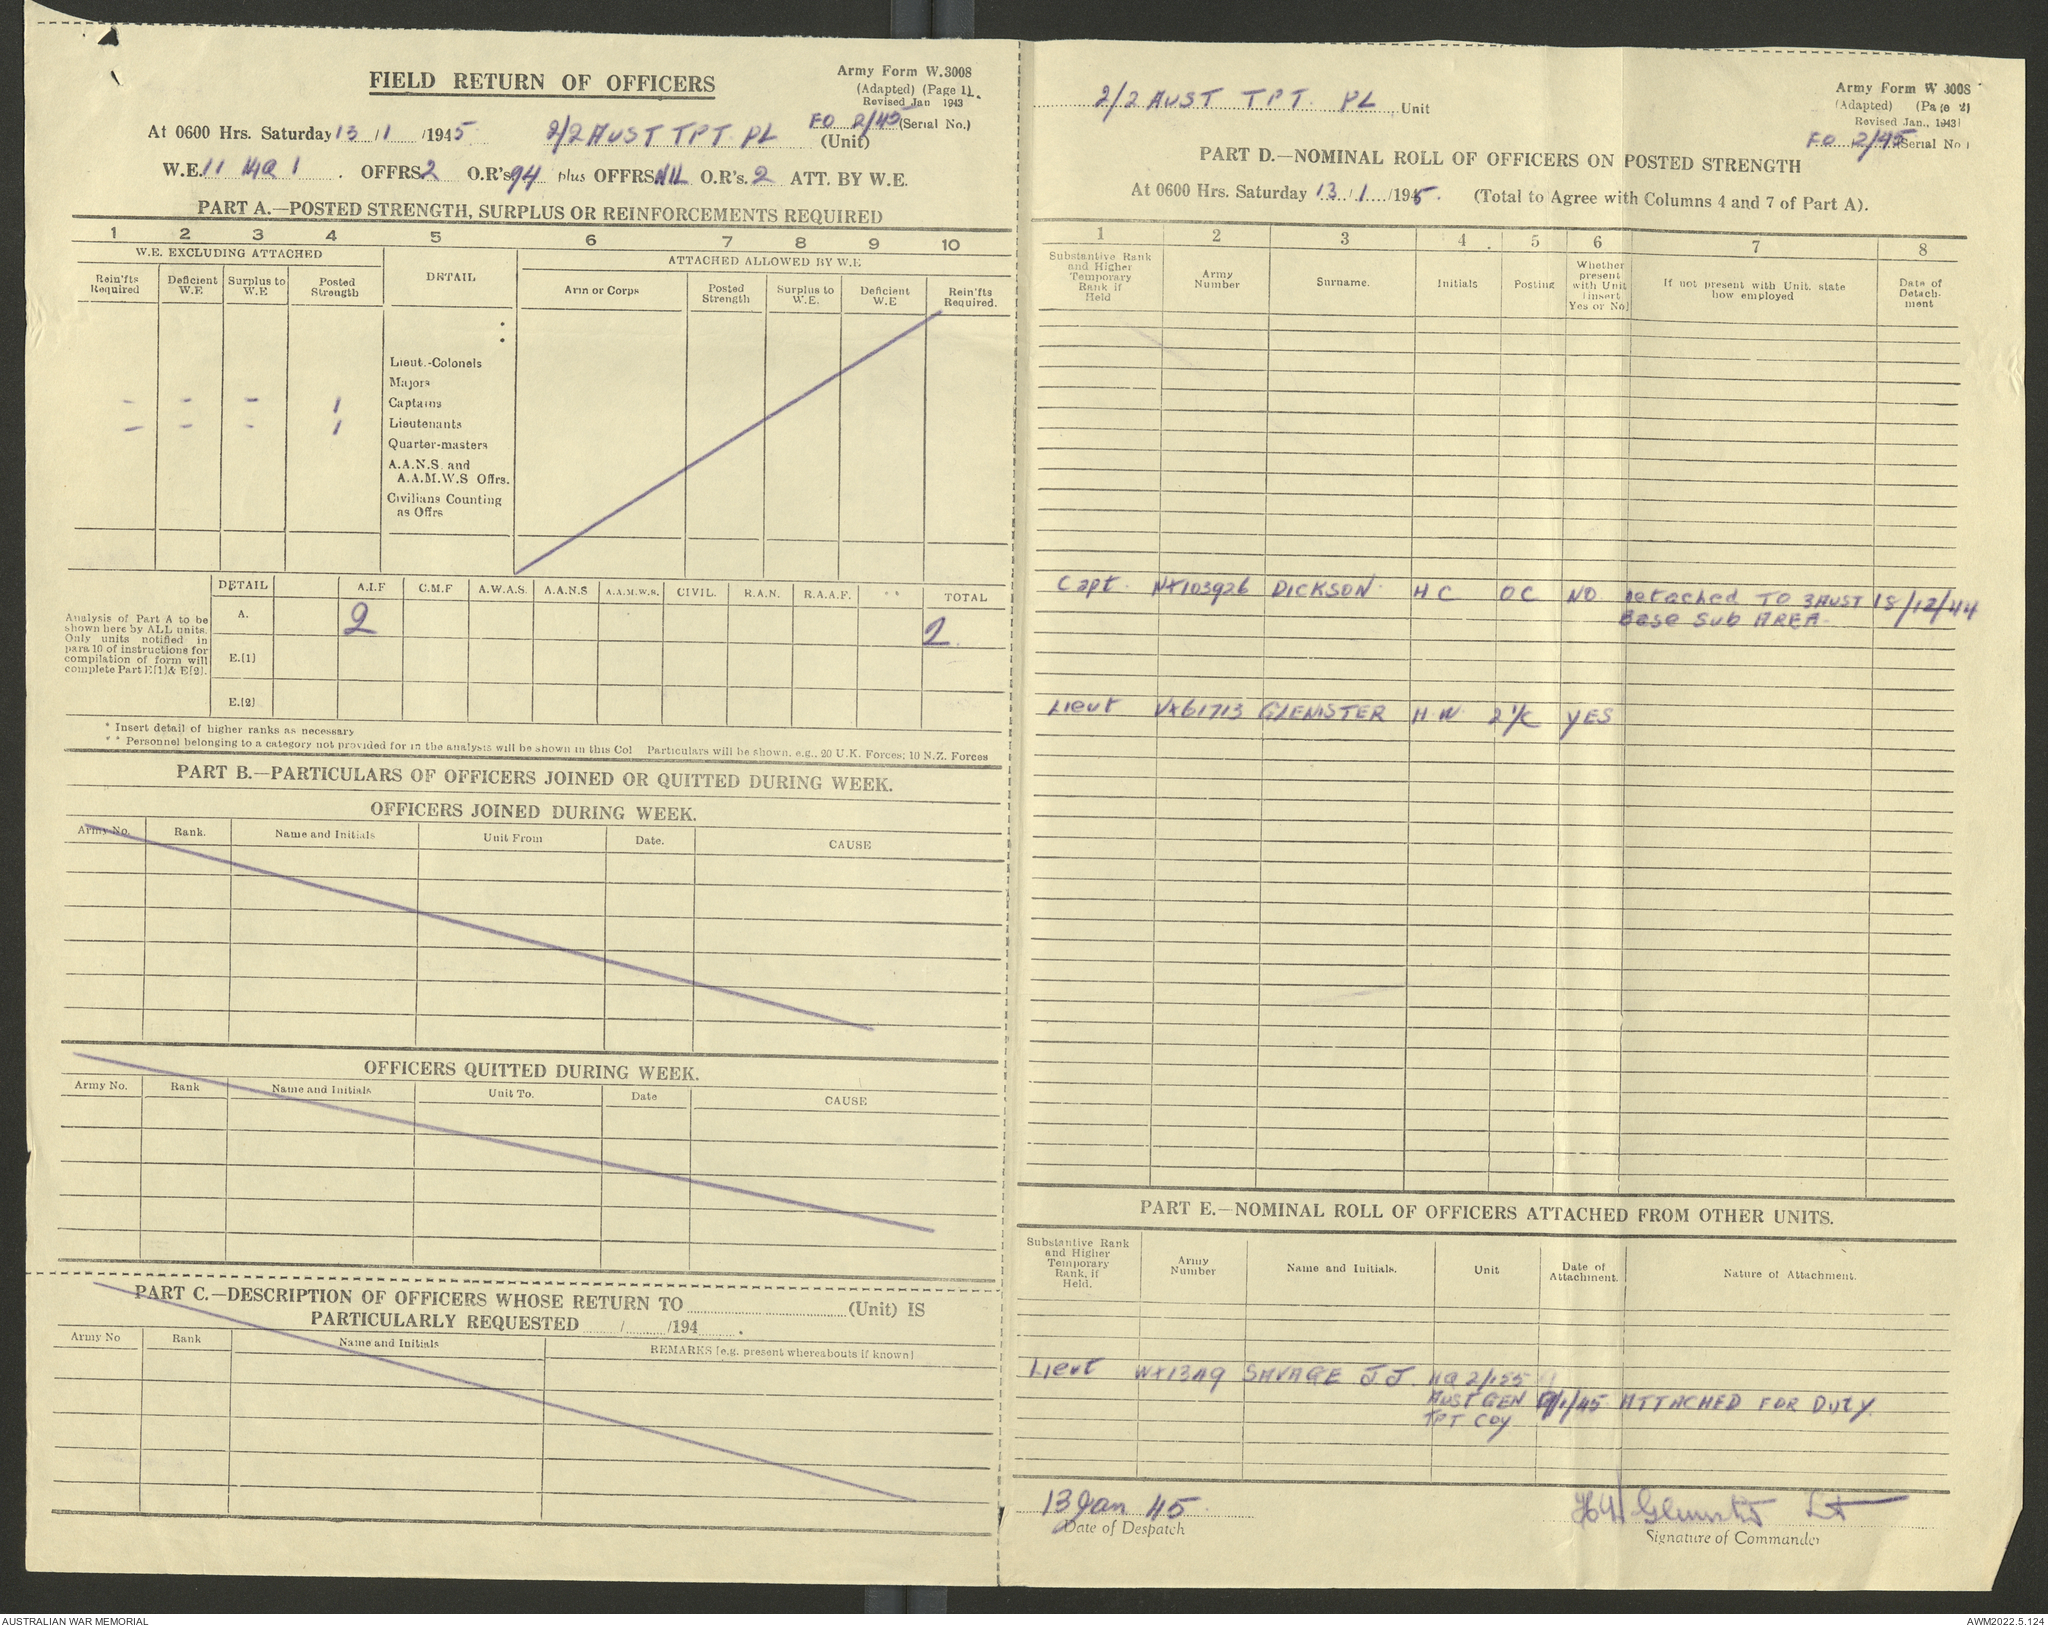 FIELD RETURN OF OFFICERS
Army Form W.3008
(Adapted) (Page 1)
Revised Jan 1943
At 0600 Hrs. Saturday 13/1/1945 2/2 AUST TPT. PL (Unit) FO 2/45 (Serial No.)
W.E. 11 OFFRS 2 O.R's. 94 plus OFFRS NIL O.R's. 2 ATT. BY W.E.
PART A.—POSTED STRENGTH, SURPLUS OR REINFORCEMENTS REQUIRED
1 2 3 4 5 6 7 8 9 10
W.E. EXCLUDING ATTACHED
DETAIL
ATTACHED ALLOWED BY W.E
Rein'fts Required
Deficient W.E
Surplus to W.E
Posted Strength
Arm or Corps
Posted Strength
Surplus to W.E.
Deficient W.E
Rein'fts Required.
Lieut.-Colonels
Majors
- - - 1 Captains
- - - 1 Lieutenants
Quarter-masters
A.A.N.S. and
A.A.M.W.S Offrs.
Civilians Counting
as Offrs
Analysis of Part A to be
shown here by ALL units.
Only units notified in
para 10 of instructions for
compilation of form will
complete Part E[1] & E[2].
DETAIL A.I.F C.M.F A.W.A.S. A.A.N.S A.A.M.W.S. CIVIL. R.A.N. R.A.A.F. ** TOTAL
A. 2 2.
E.(1)
E.(2)
* Insert detail of higher ranks as necessary
** Personnel belonging to a category not provided for in the analysis will be shown in this Col Particulars will be shown, e.g., 20 U.K. Forces; 10 N.Z. Forces
PART B.—PARTICULARS OF OFFICERS JOINED OR QUITTED DURING WEEK.
OFFICERS JOINED DURING WEEK.
Army No. Rank. Name and Initials Unit From Date. CAUSE
OFFICERS QUITTED DURING WEEK.
Army No. Rank Name and Initials Unit To. Date CAUSE
PART C.—DESCRIPTION OF OFFICERS WHOSE RETURN TO (Unit) IS
PARTICULARLY REQUESTED / /194 .
Army No Rank Name and Initials REMARKS [e.g. present whereabouts if known]
2/2 AUST TPT. PL. Unit
Army Form W 3008
(Adapted) (Page 2)
Revised Jan., 1943
FO 2/45 Serial No
PART D.—NOMINAL ROLL OF OFFICERS ON POSTED STRENGTH
At 0600 Hrs. Saturday 13/1/1945. (Total to Agree with Columns 4 and 7 of Part A).
1 2 3 4 5 6 7 8
Substantive Rank and Higher Temporary Rank if Held
Army Number
Surname.
Initials
Posting
Whether present with Unit [insert Yes or No]
If not present with Unit. state how employed
Date of Detachment
Capt. NX103926 DICKSON. H C OC NO Detached TO 3 AUST 15/12/44
Base Sub AREA.
Lieut VX61713 GLENISTER H.W. 2 I/C YES
PART E.—NOMINAL ROLL OF OFFICERS ATTACHED FROM OTHER UNITS.
Substantive Rank and Higher Temporary Rank, if Held.
Army Number
Name and Initials.
Unit
Date of Attachment.
Nature of Attachment.
Lieut SAVAGE J J. HQ 2/155
AUST GEN 9/1/45 ATTACHED FOR DUTY.
TPT COY
13 Jan. 45.
Date of Despatch
HW Glenister Lt
Signature of Commander
AUSTRALIAN WAR MEMORIAL
AWM2022.5.124